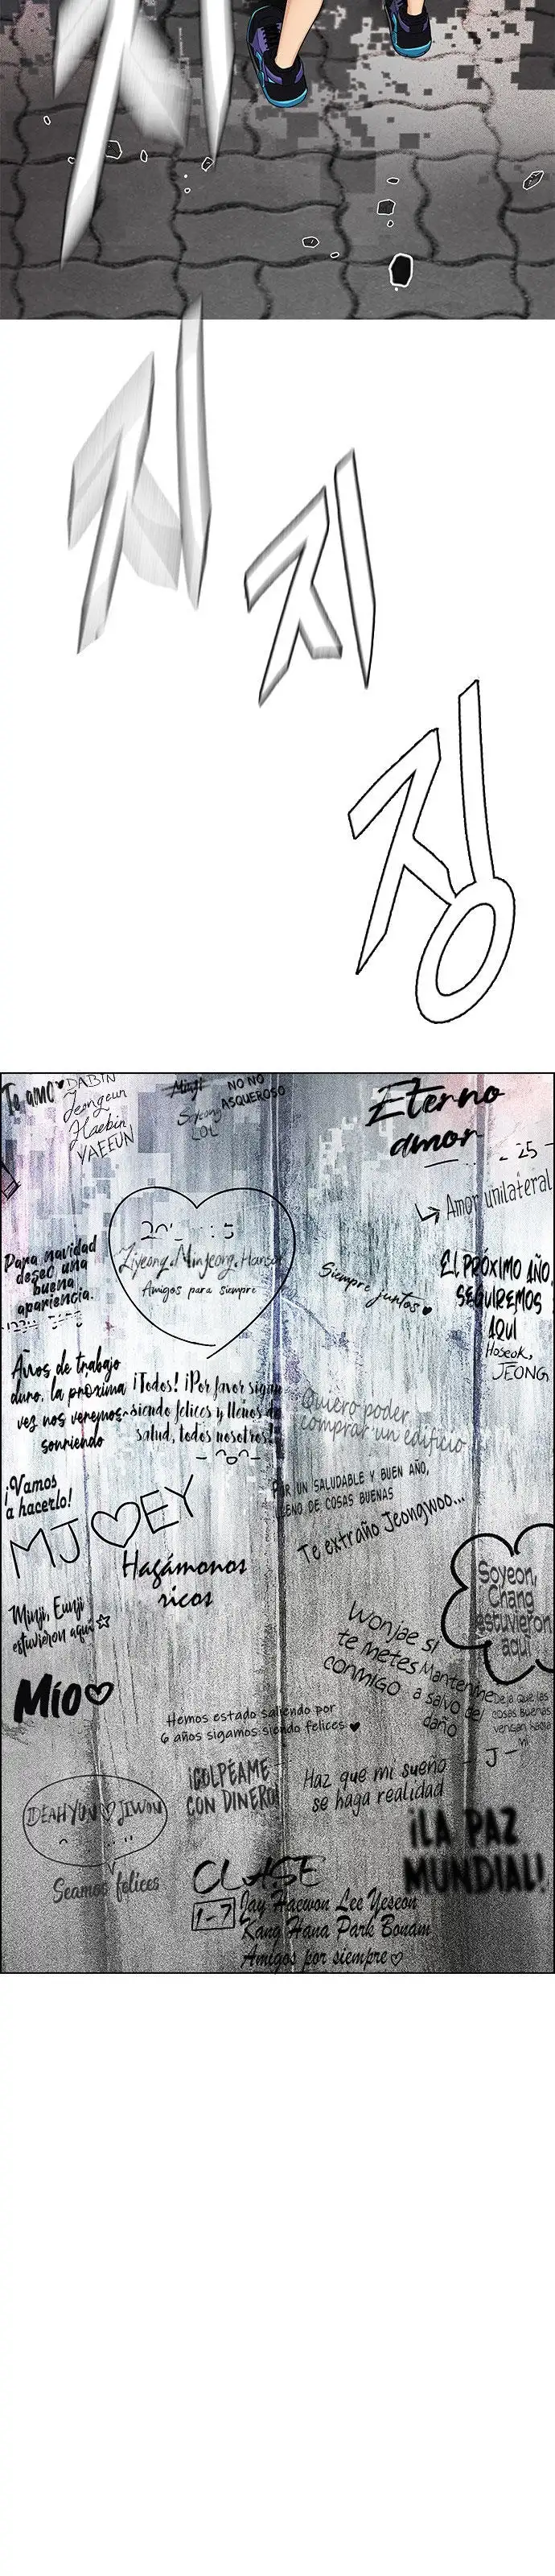 지
지
지
징
Te amo♥
DABIN
Jeongeun
Haebin
YAEEUN
Minji
Soyeong
LOL
NO NO
ASQUEROSO
Eterno
amor
25
Amor unilateral
Ziyeong, Minjeong, Hansol
Amigos para siempre
Siempre juntos♥
EL PRÓXIMO AÑO
SEGUIREMOS
AQUÍ
Hoseok,
JEONG
Para navidad
deseo una
buena
apariencia.
Años de trabajo
duro, la próxima
vez nos veremos
sonriendo
¡Todos! ¡Por favor sigan
siendo felices y llenos de
salud, todos nosotros!
Quiero poder
comprar un edificio
POR UN SALUDABLE Y BUEN AÑO,
LLENO DE COSAS BUENAS
Te extraño Jeongwoo...
¡Vamos
a hacerlo!
MJ♡EY
Hagámonos
ricos
Soyeon,
Chang
estuvieron
aquí
Minji, Eunji
estuvieron aquí☆
Wonjae si
te metes
conmigo
Mantenme
a salvo del
daño
Deja que las
cosas buenas
vengan hacia
mí
- J -
Mío♡
Hemos estado saliendo por
6 años sigamos siendo felices ♥
¡GOLPÉAME
CON DINERO!
Haz que mi sueño
se haga realidad
DEAHYUN ♡ JIWON
Seamos felices
¡LA PAZ
MUNDIAL!
CLASE
1-7
Jay Haewon Lee Yeseon
Kang Hana Park Bonam
Amigos por siempre♡